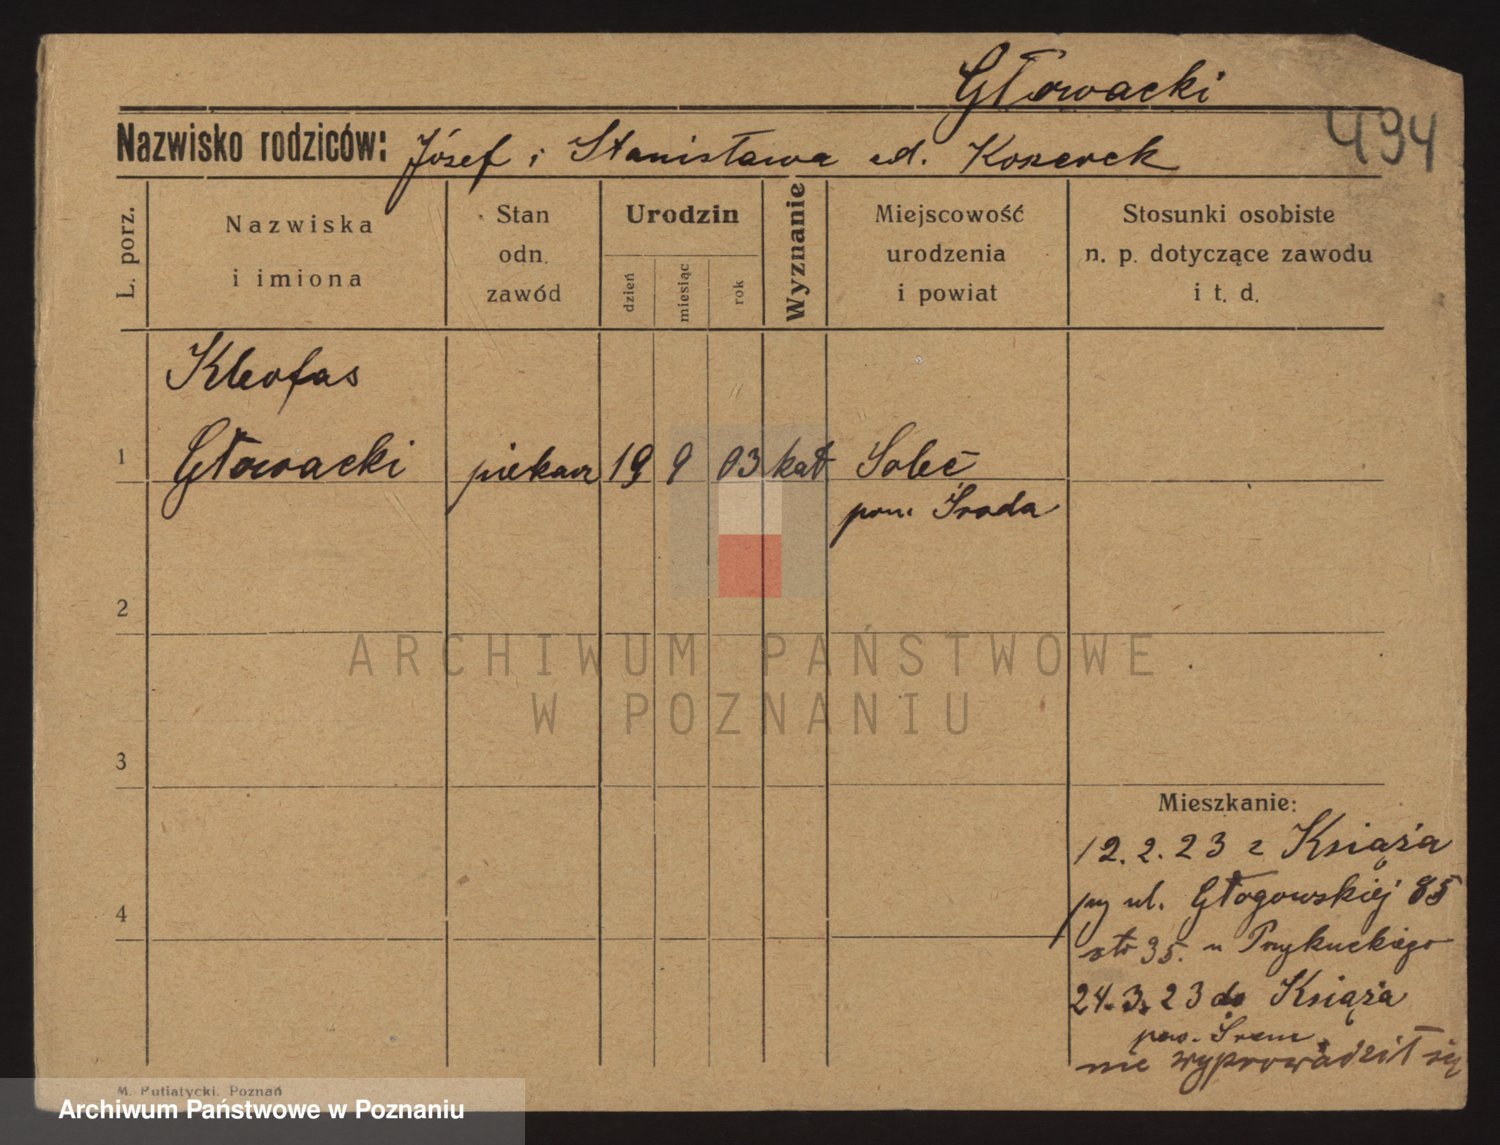 Głowacki
494
Nazwisko rodziców: Józef i Stanisława
L. porz.
Nazwiska
i imiona
Stan
odn.
zawód
Urodzin
dzień
miesiąc
rok
Wyznanie
Miejscowość
urodzenia
i powiat
Stosunki osobiste
n. p. dotyczące zawodu
i t. d.
Kleofas
1 Głowacki piekarz 19 9 03 kat Solec
pow. Środa
2
ARCHIWUM PAŃSTWOWE
W POZNANIU
3
Mieszkanie:
12.2.23 z Książa
przy ul. Głogowskiej 85
4
35. u Przykuckiego
24.3.23 do Książa
pow. Śrem
nie wyprowadził się
M. Putiatycki, Poznań
Archiwum Państwowe w Poznaniu